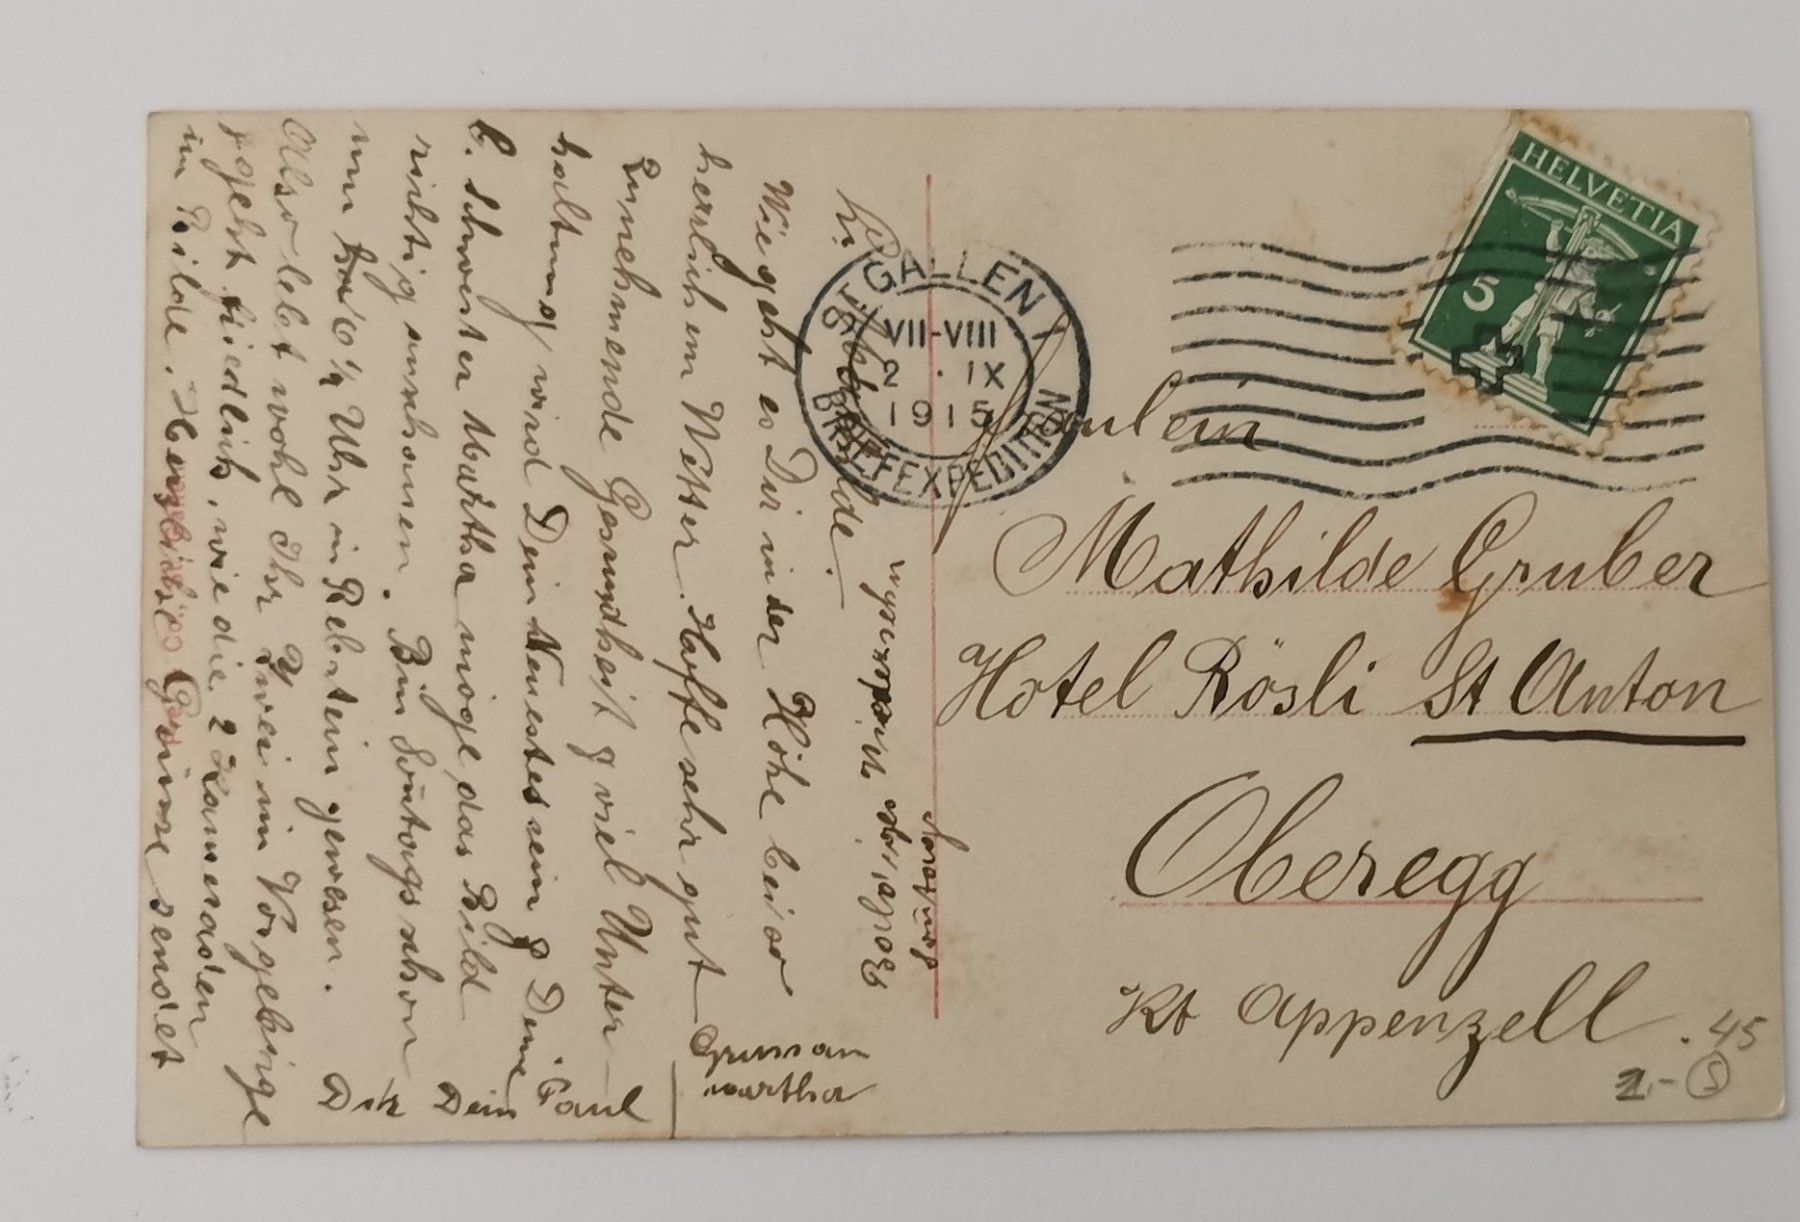 HELVETIA
5
ST. GALLEN 1
VII-VIII
2 · IX
1915
BRIEFEXPEDITION
Fräulein
Mathilde Gruber
Hotel Rösli St Anton
Oberegg
Kt Appenzell.
45
1.- S
Mathilde.
Wie geht es Dir in der Höhe bei so
herrlichem Wetter. Hoffe sehr gut
Zunehmende Gesundheit & viel Unter-
haltung wird Dein Neuestes sein & Deine
l. Schwester Martha möge das Bild
richtig anschauen. Bin Sontags schon
um 6 1/4 Uhr in Rebstein gewesen.
Also lebt wohl Ihr Zwei im Vorgebirge
& gehts friedlich, wie die 2 Kameraden
im Bilde. Herzliche Grüsse sendet
Dir Dein Paul
Gruss an
Martha